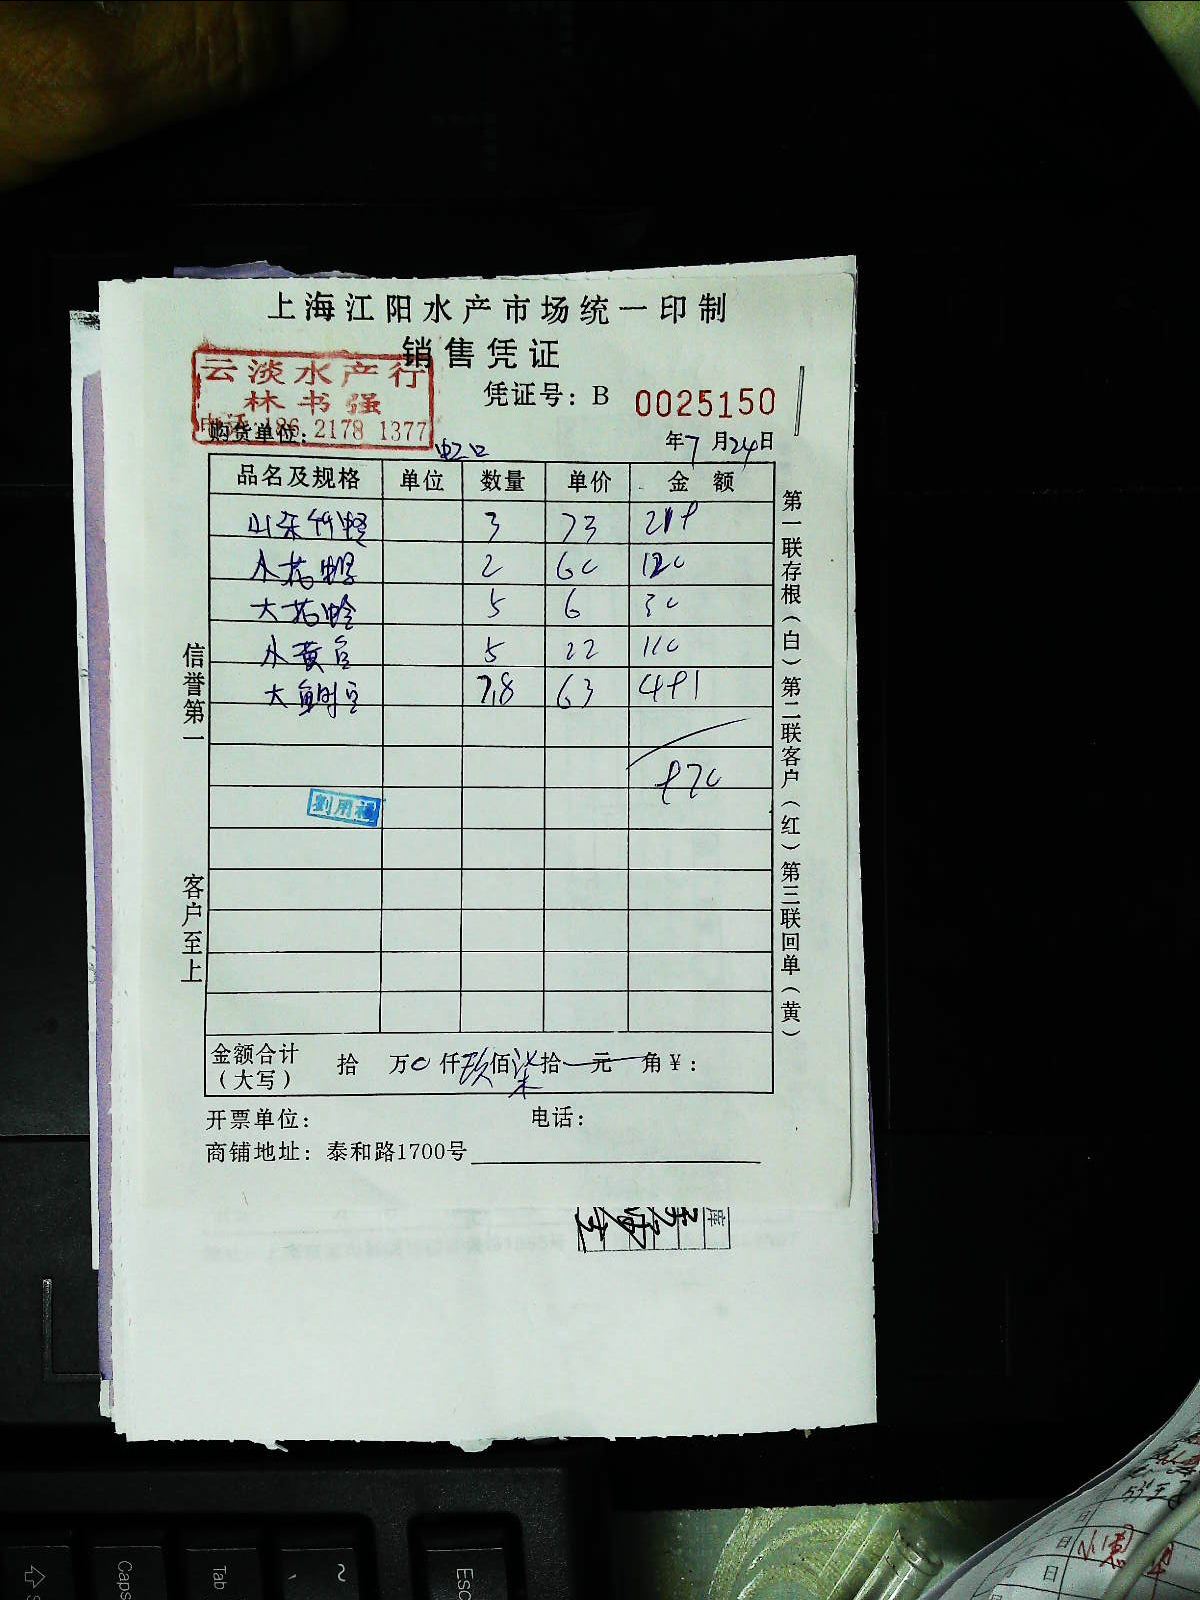 上海江阳水产市场统一印制
销售凭证
云淡水产行
林书强
电话:186 2178 1377
凭证号: B 0025150
购货单位: 虹口
年7月24日
品名及规格 单位 数量 单价 金额
山东竹蛏 3 73 219
小花螺 2 60 120
大花蛤 5 6 30
小黄 5 22 110
大鲥 7.8 63 491
970
劉用福
信誉第一
客户至上
第一联存根(白)第二联客户(红)第三联回单(黄)
金额合计(大写) 拾 万0仟玖佰柒拾 元 角¥:
开票单位: 电话:
商铺地址: 泰和路1700号
库
Esc
~
Tab
Caps
日
日